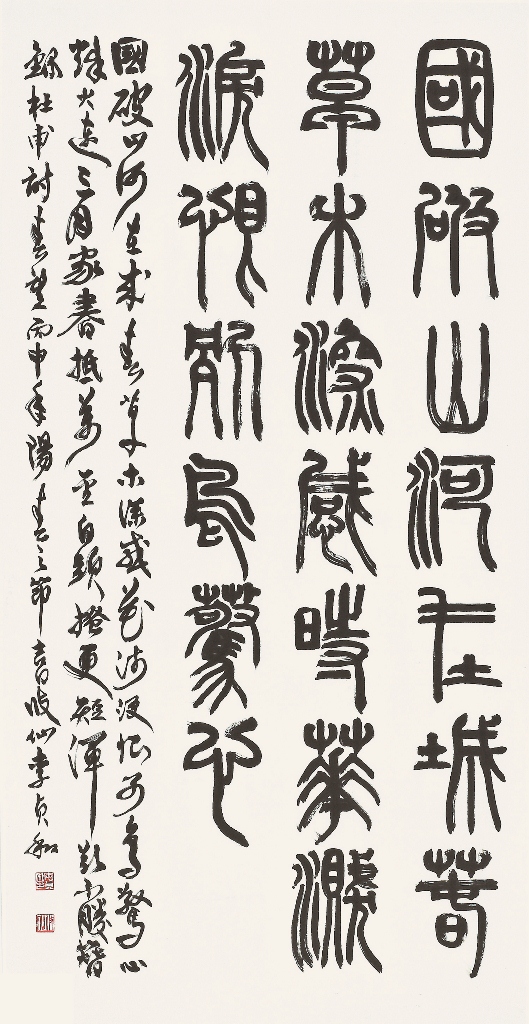 國破山河在城萅
草木深感時華濺
淚恨別鳥驚心
國破山河在城春草木深感花濺淚恨別鳥驚心
烽火連三月家書抵萬金白頭搔更短渾欲不勝簪
錄杜甫詩春望丙申年陽春之節李貞和